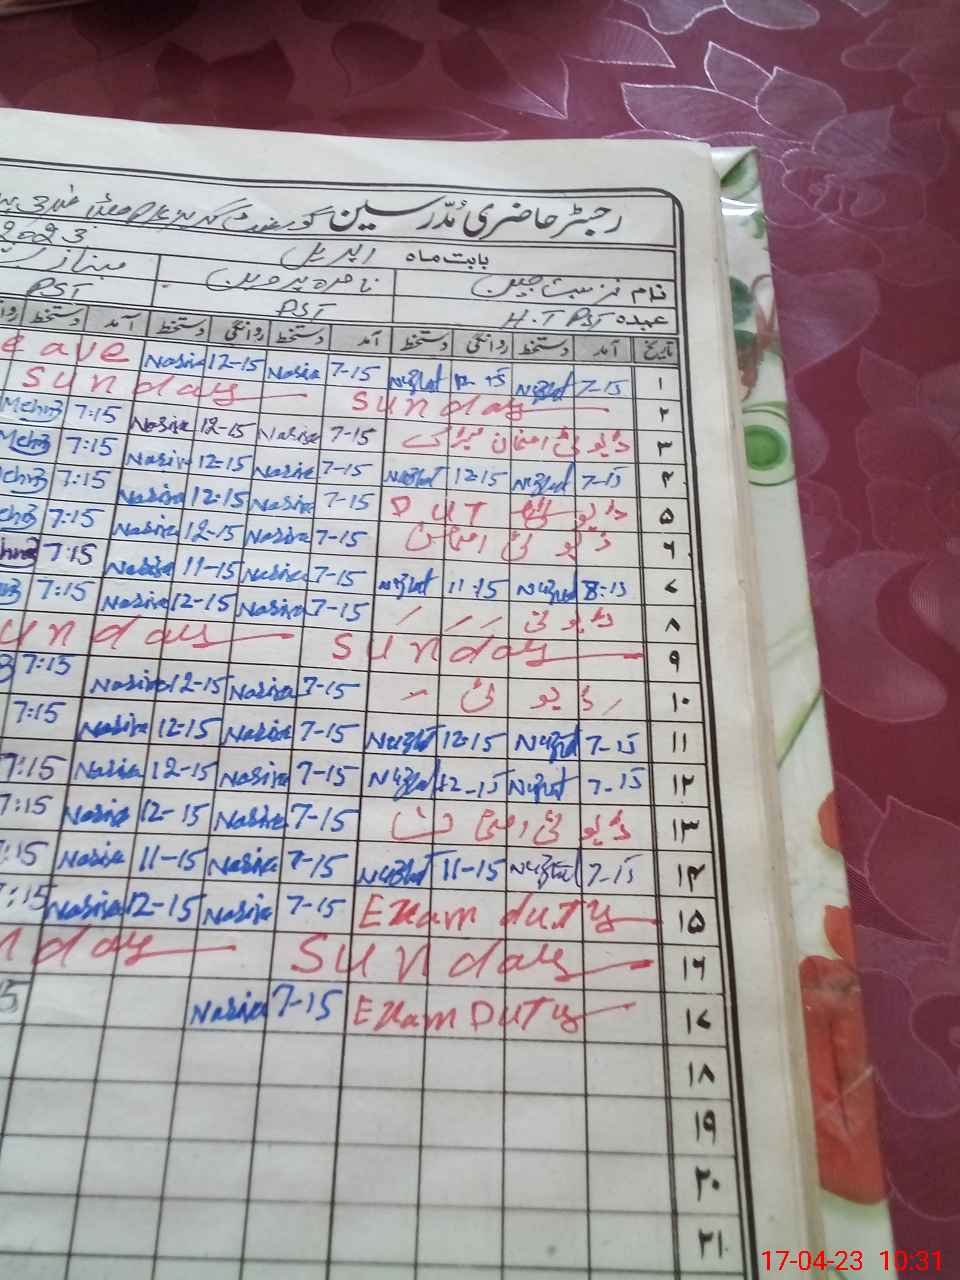 رجسٹر حاضری مُدّرسین گورنمنٹ
بابت ماہ اپریل 2023
نام نزہت جبین ناصرہ پروین مہناز
عہدہ H.T PST PST PST
تاریخ آمد دستخط روانگی دستخط آمد دستخط روانگی دستخط آمد دستخط
١ 7-15 Nuzhat 12-15 Nuzhat 7-15 Nasira 12-15 Nasira Leave
٢ Sunday Sunday
٣ ڈیوٹی امتحان 7-15 Nasira 12-15 Nasira 7:15 Mehnaz
۴ 7-15 Nuzhat 12-15 Nuzhat 7-15 Nasira 12-15 Nasira 7:15 Mehnaz
۵ ڈیوٹی DUT 7-15 Nasira 12-15 Nasira 7:15
٦ ڈیوٹی امتحان 7-15 Nasira 12-15 Nasira 7:15
۷ 8-15 Nuzhat 11-15 Nuzhat 7-15 Nasira 11-15 Nasira 7:15
٨ ڈیوٹی 7-15 Nasira 12-15 Nasira 7:15
٩ Sunday Sunday
١٠ ڈیوٹی 7-15 Nasira 12-15 Nasira 7:15
١١ 7-15 Nuzhat 12-15 Nuzhat 7-15 Nasira 12-15 Nasira 7:15
١٢ 7-15 Nuzhat 12-15 Nuzhat 7-15 Nasira 12-15 Nasira 7:15
١٣ ڈیوٹی امتحان 7-15 Nasira 12-15 Nasira 7:15
١۴ 7-15 Nuzhat 11-15 Nuzhat 7-15 Nasira 11-15 Nasira 7:15
١۵ Exam duty 7-15 Nasira 12-15 Nasira 7:15
١٦ Sunday Sunday
١۷ Exam DUTy 7-15 Nasira
١٨
١٩
٢٠
٢١
17-04-23 10:31